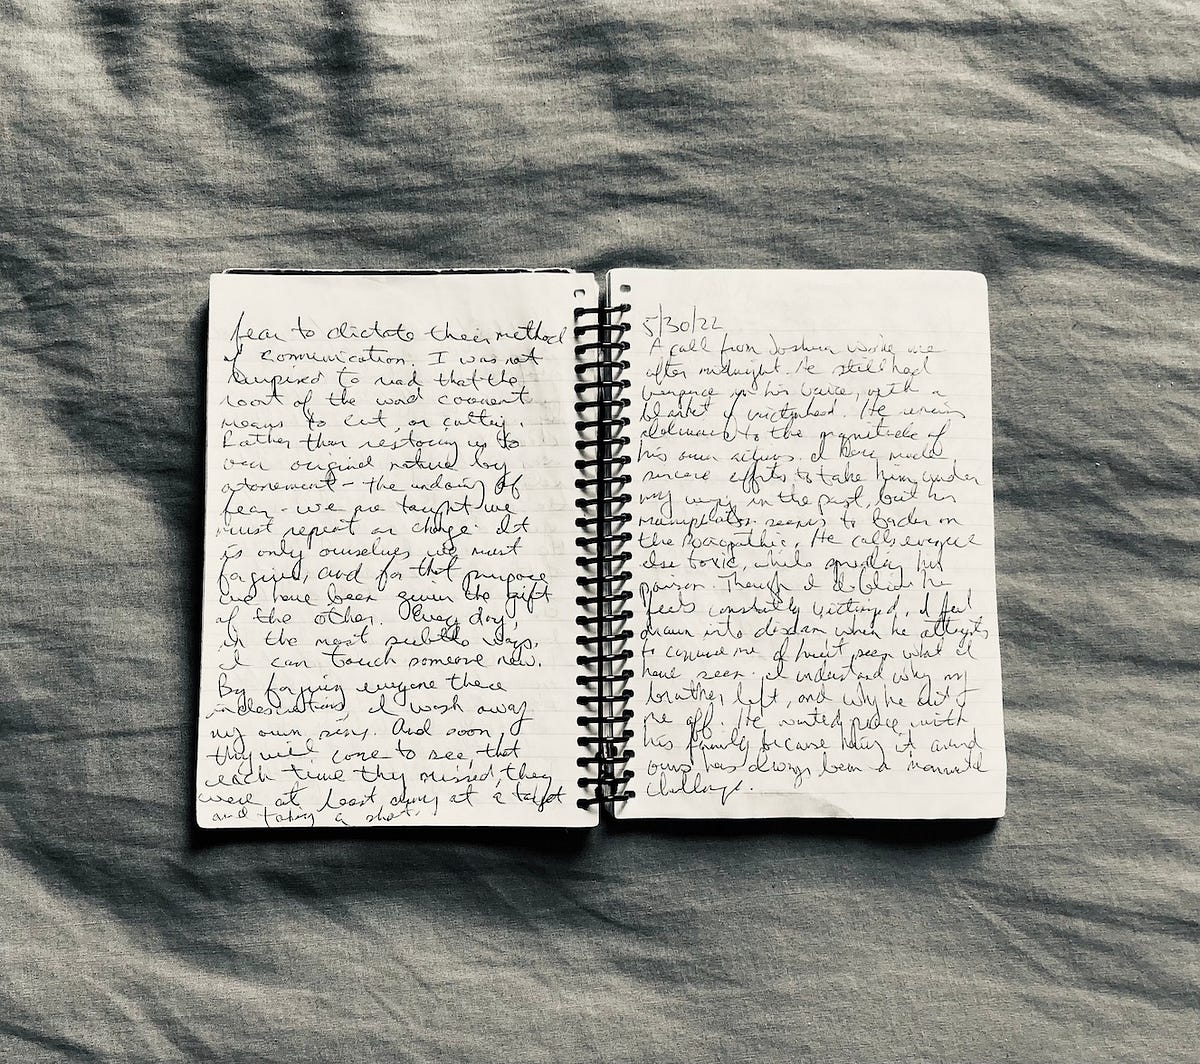 fear to dictate their method
of communication. I was not
surprised to read that the
root of the word covenant
means to cut, or cutting.
Rather than restoring us to
our original nature by
atonement - the undoing of
fear - we are taught we
must repent or change. It
is only ourselves we must
forgive, and for that purpose
we have been given the gift
of the other. Every day,
in the most subtle ways,
I can touch someone new.
By forgiving everyone these
indiscretions, I wash away
my own sins. And soon
they will come to see, that
each time they missed, they
were at least aiming at a target
and taking a shot.
5/30/22
A call from Joshua woke me
after midnight. He still had
vengeance in his voice, with a
blanket of victimhood. He remains
to the magnitude of
his own actions. I have made
sincere efforts to take him under
my wing in the past, but his
manipulation seems to border on
the sociopathic. He calls everyone
else toxic, while spreading his
poison. Though I do believe he
feels constantly victimized, I feel
drawn into disdain when he attempts
to convince me I haven't seen what I
have seen. I understand why my
brother left, and why he cut
me off. He wanted peace with
his family because having it around
ours has always been a
challenge.